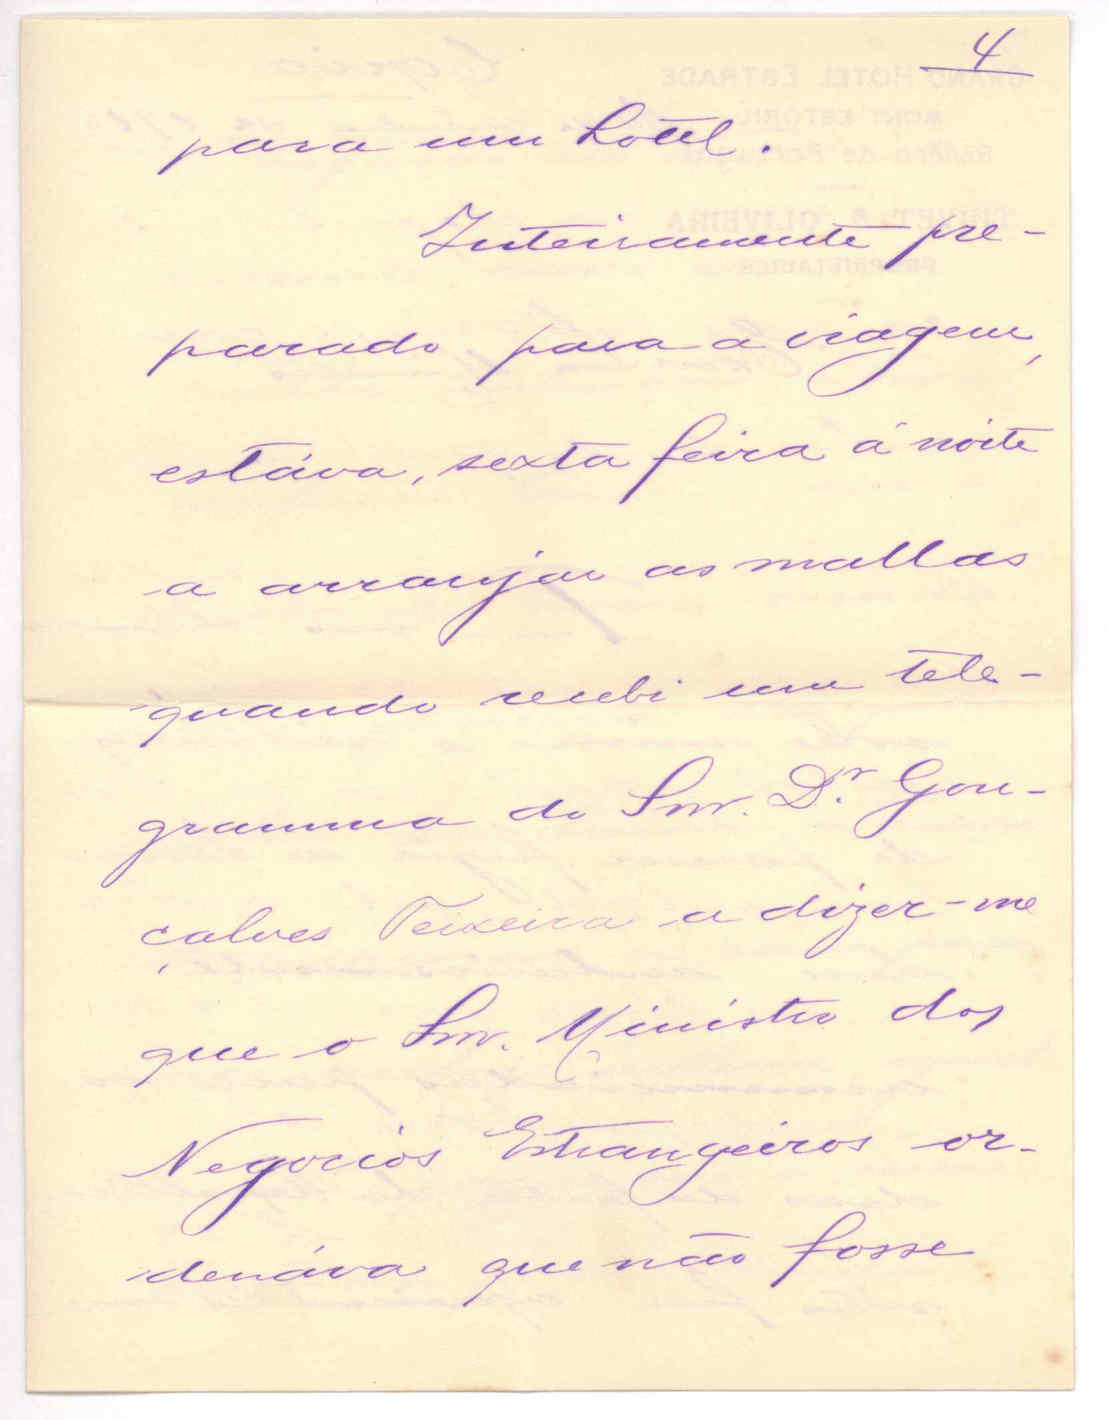 4
para um hotel.
Inteiramente pre-
parado para a viagem,
estáva, sexta feira á noite
a arranjar as mallas
quando recebi um tele-
gramma do Snr. Dr. Gon-
çalves Teixeira a dizer-me
que o Snr. Ministro dos
Negocios Estrangeiros or-
denáva que não fosse